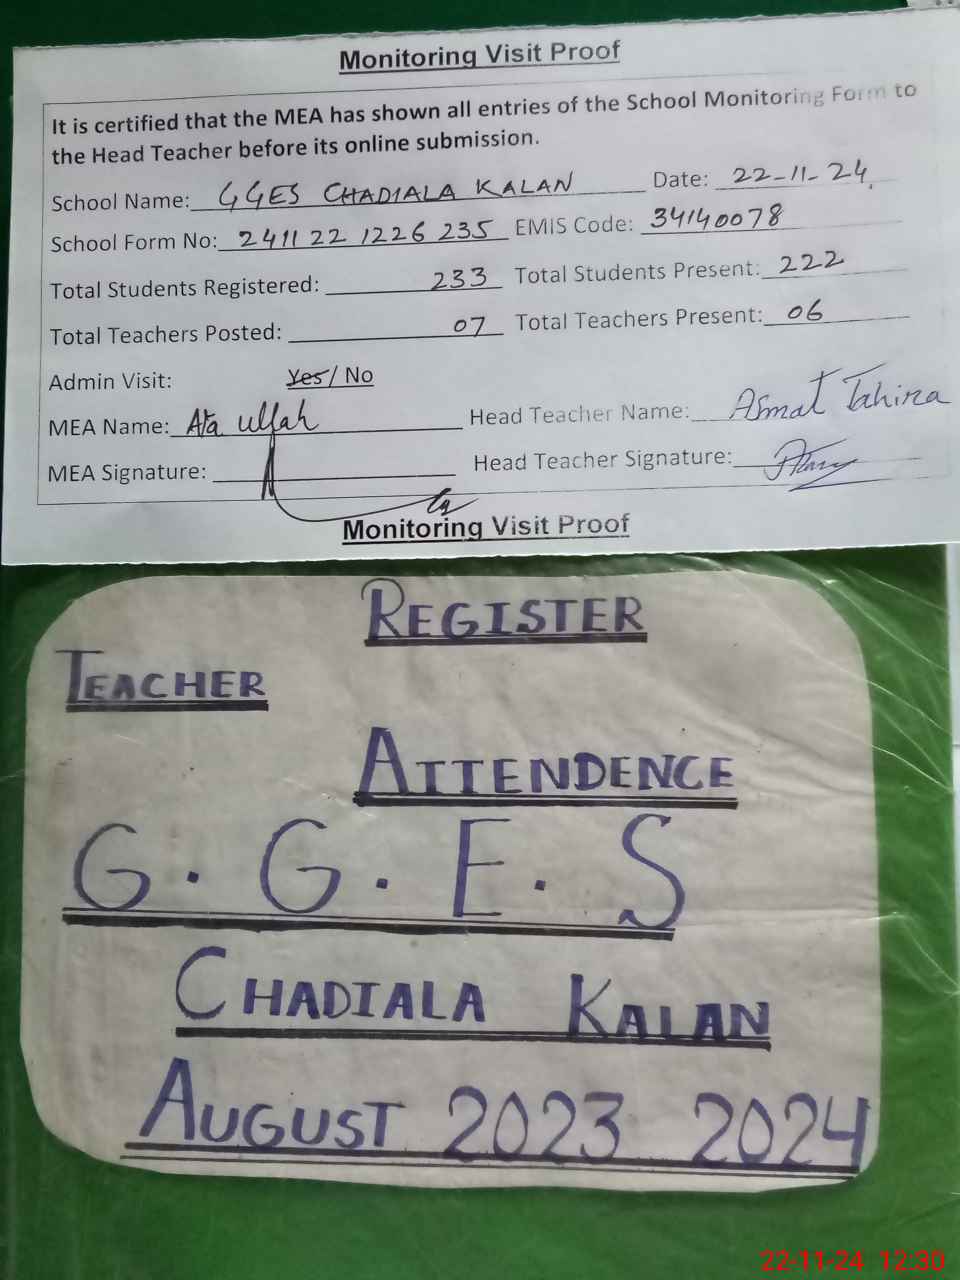 Monitoring Visit Proof
It is certified that the MEA has shown all entries of the School Monitoring Form to
the Head Teacher before its online submission.
School Name: GGES CHADIALA KALAN Date: 22-11-24
School Form No: 2411 22 1226 235 EMIS Code: 34140078
Total Students Registered: 233 Total Students Present: 222
Total Teachers Posted: 07 Total Teachers Present: 06
Admin Visit: Yes/ No
MEA Name: Ata ullah Head Teacher Name: Asmat Tahira
MEA Signature: Head Teacher Signature:
Monitoring Visit Proof
REGISTER
TEACHER
ATTENDENCE
G. G. E. S
CHADIALA KALAN
AUGUST 2023 2024
22-11-24 12:30